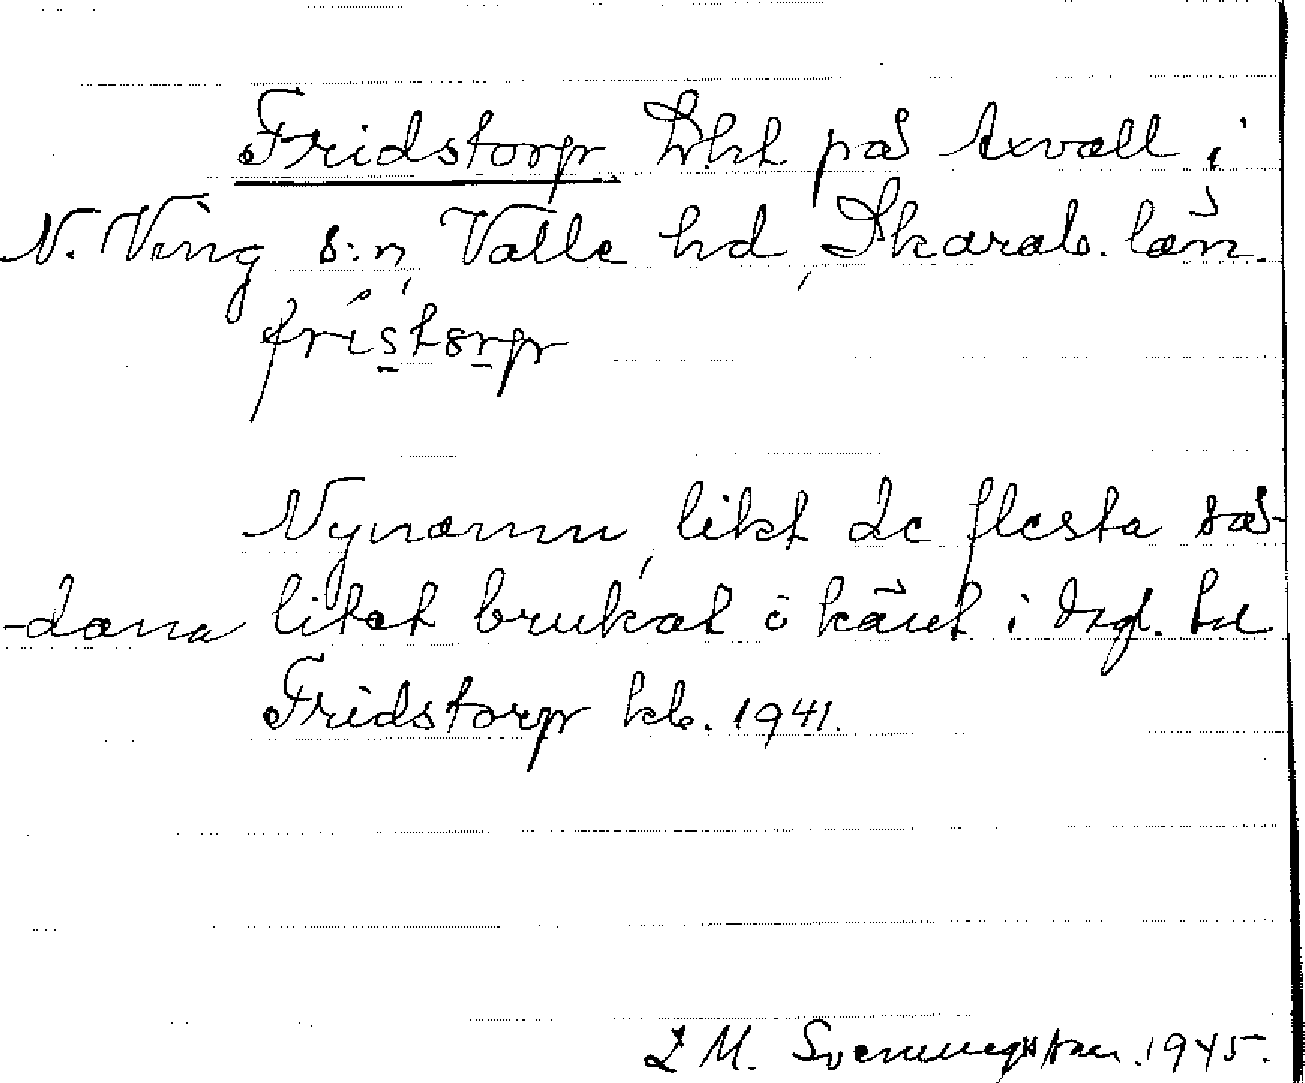 Fridstorp lht på Axvall i
N. Ving s:n, Valle hd, Skarab. län.
fristorp
Nynamn, likt de flesta så-
-dana litet brukat o känt i dagl. tal
Fridstorp kb. 1941.
L M. Svenungsson. 1945.